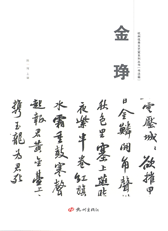 金琤
雲壓城城欲摧甲
日金鱗開角聲
秋色里塞上燕脂
夜紫半卷红旗
水霜重鼓寒聲
起報君黄金臺上
携玉龙为君死